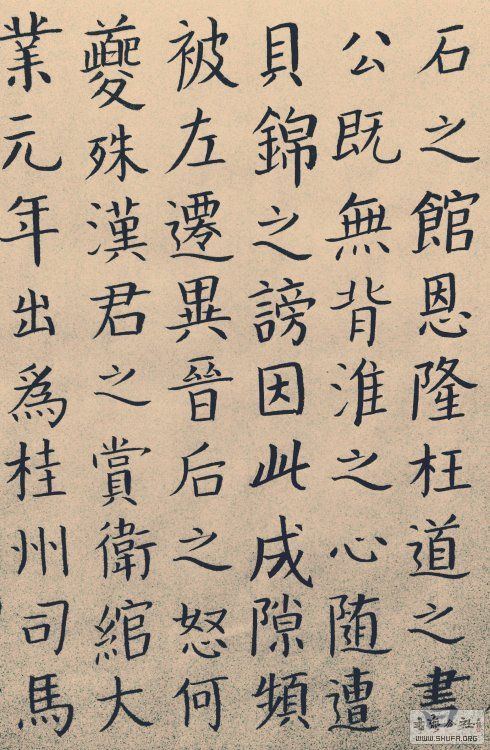 石之館恩隆枉道之書
公既無背淮之心随遭
貝錦之謗因此成隙頻
被左遷異晉后之怒何
夔殊漢君之賞衛綰大
業元年出為桂州司馬
WWW.SHUFA.ORG